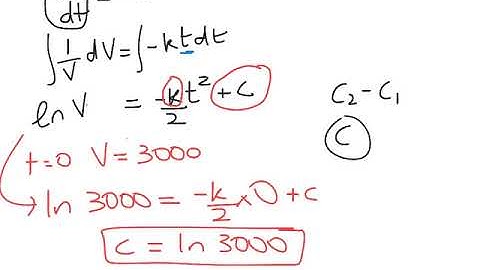 dt
∫ 1/V dV = ∫ -kt dt
ln V = -k/2 t² + C
C₂ - C₁
C
t=0 V = 3000
ln 3000 = -k/2 × 0 + C
C = ln 3000